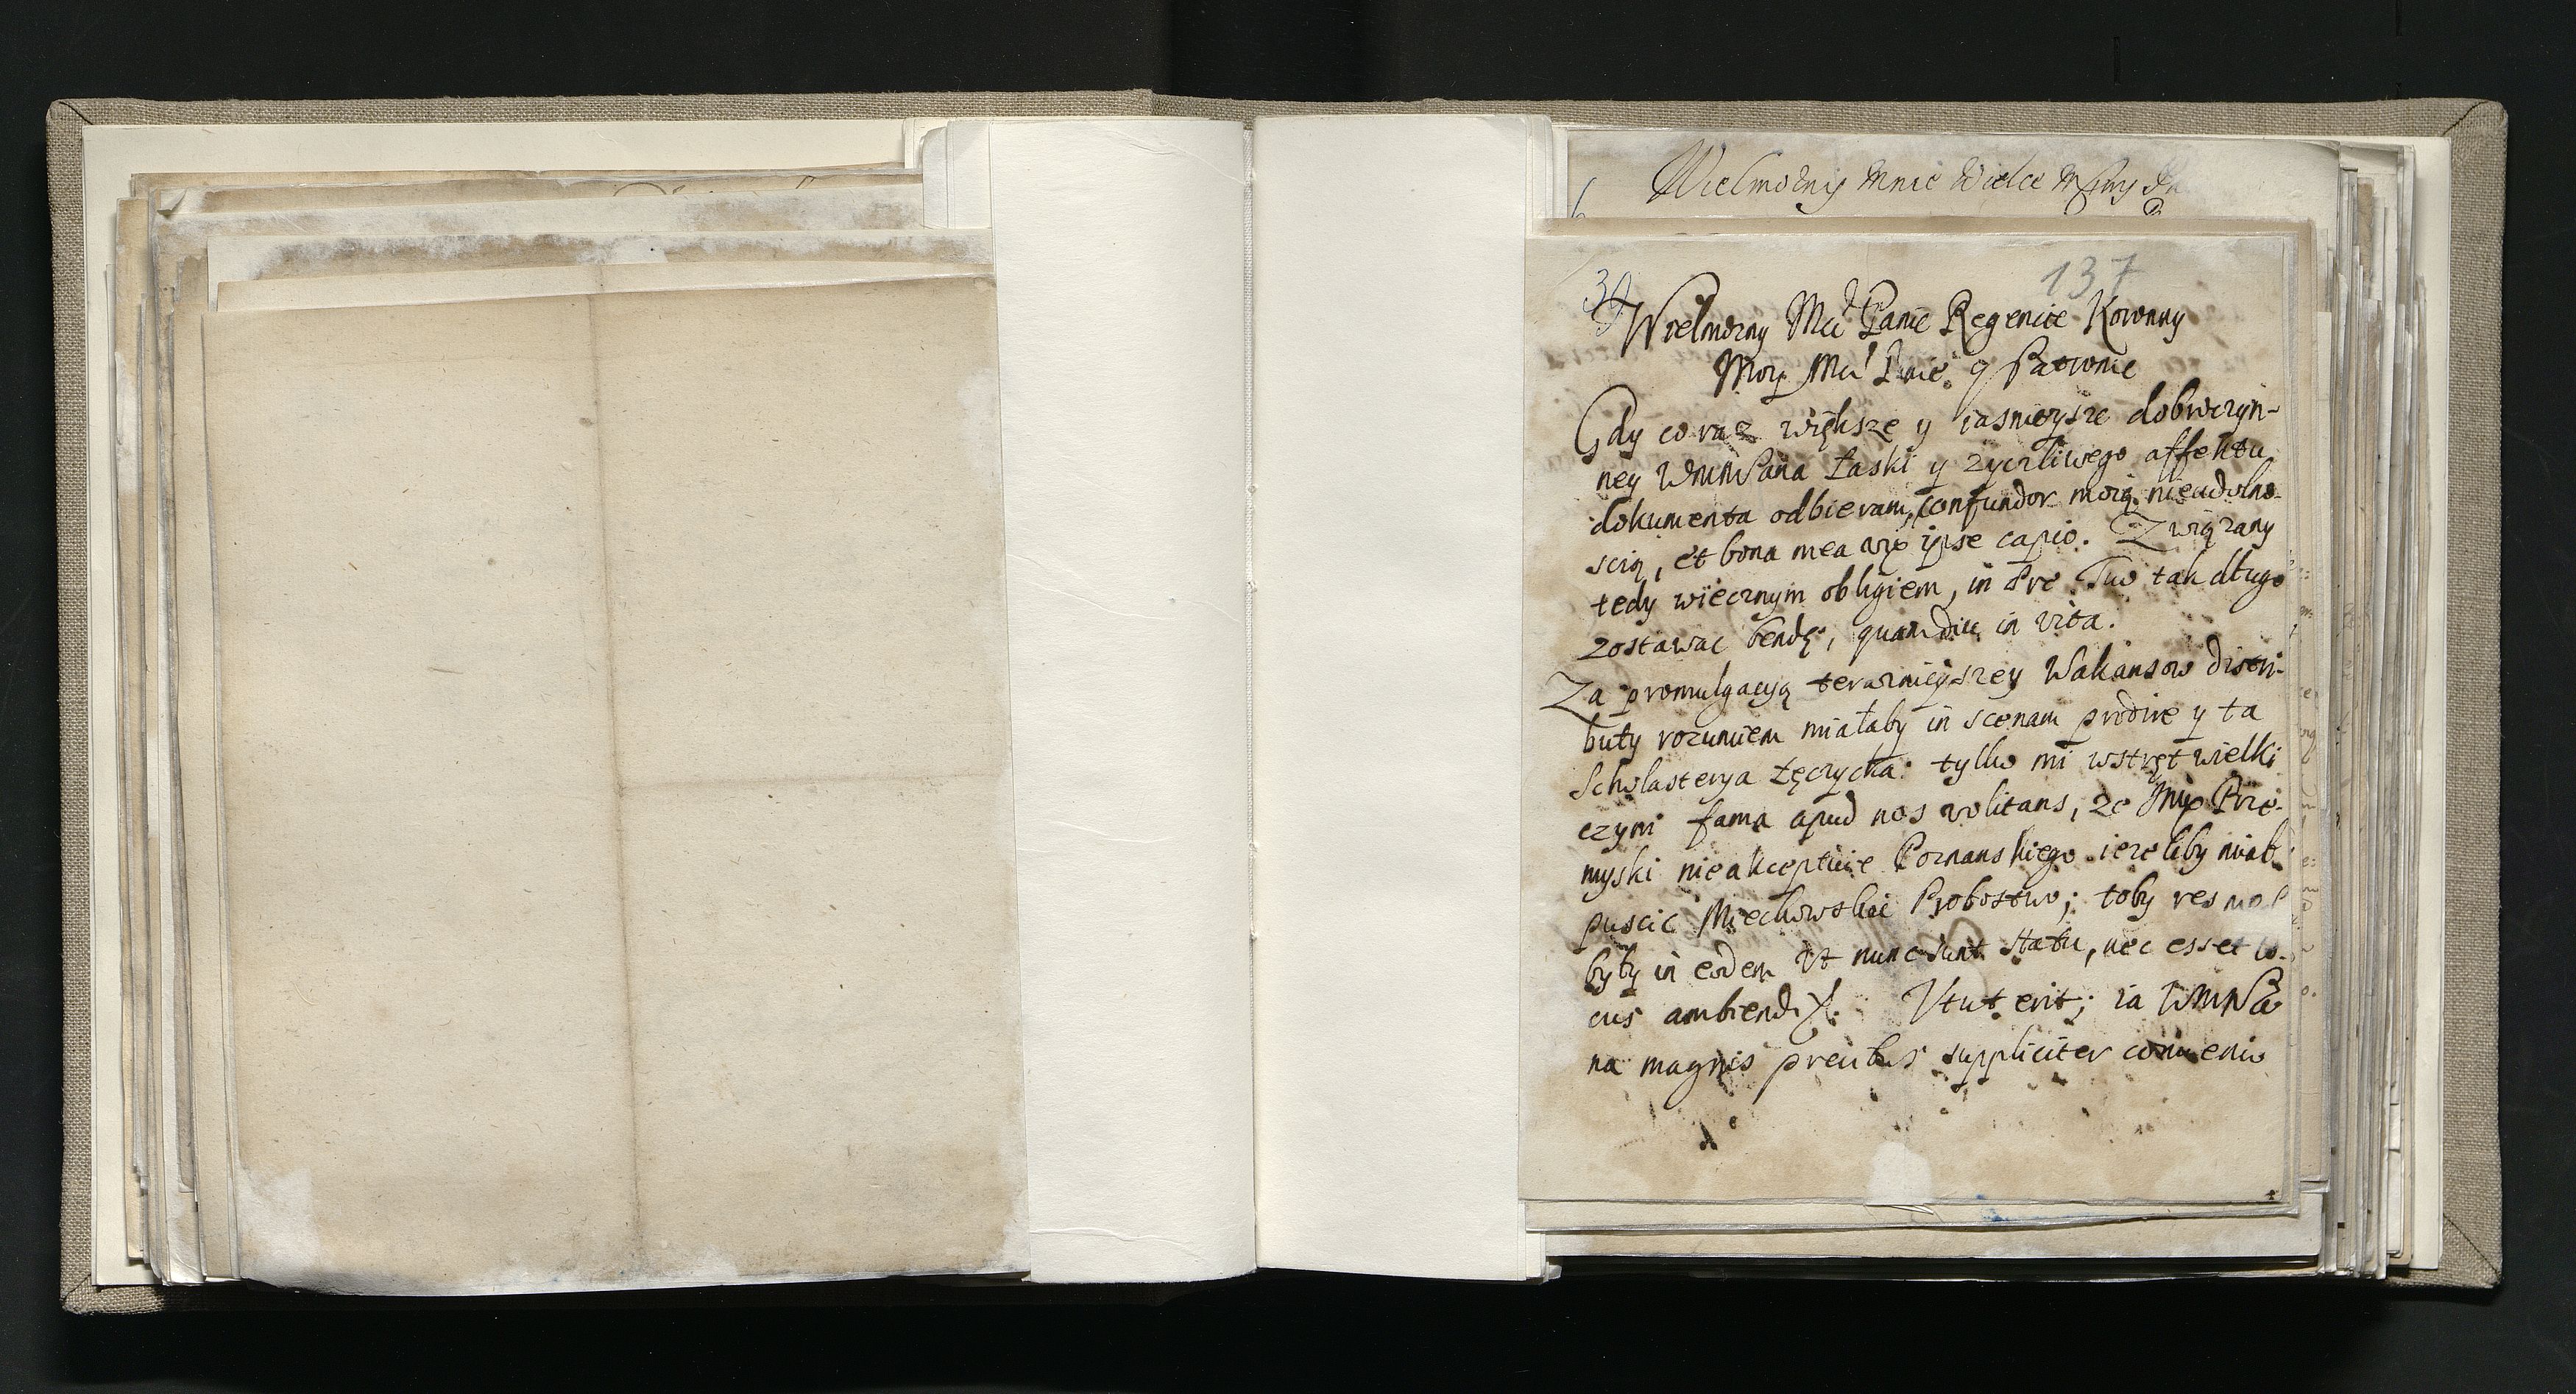 Wielmożny Mnie Wielce Mściwy
137
39
Wielmozny Mci Panie Regencie Koronny
Moy Mci Panie y Patronie
Gdy co raz większe y iasnieysze dobroczyn-
ney WMMPana Łaski y zyczliwego affektu
dokumenta odbieram, confundor moią nieudolno-
scią, et bona mea vix ipse capio. Związany
tedy wiecznym obligiem, in ære Tuo tak długo
zostawac bendę, quamdiu in vita.
Za promulgacyą teraznieyszey Wakansow distri-
buty rozumiem miałaby in scenam prodire y ta
Scholasterya Łęczycka: tylko mi wstręt wielki
czyni fama apud nos volitans, ze Jmx Prze-
myski nieakceptuie Poznanskiego iezeliby miał
puscic Miechowskie Probostwo; toby res
były in eodem Vt nunc sunt statu, nec esset lo-
cus ambiendi. Vtut erit; ia WMMPa
na magnis precibus suppliciter convenio